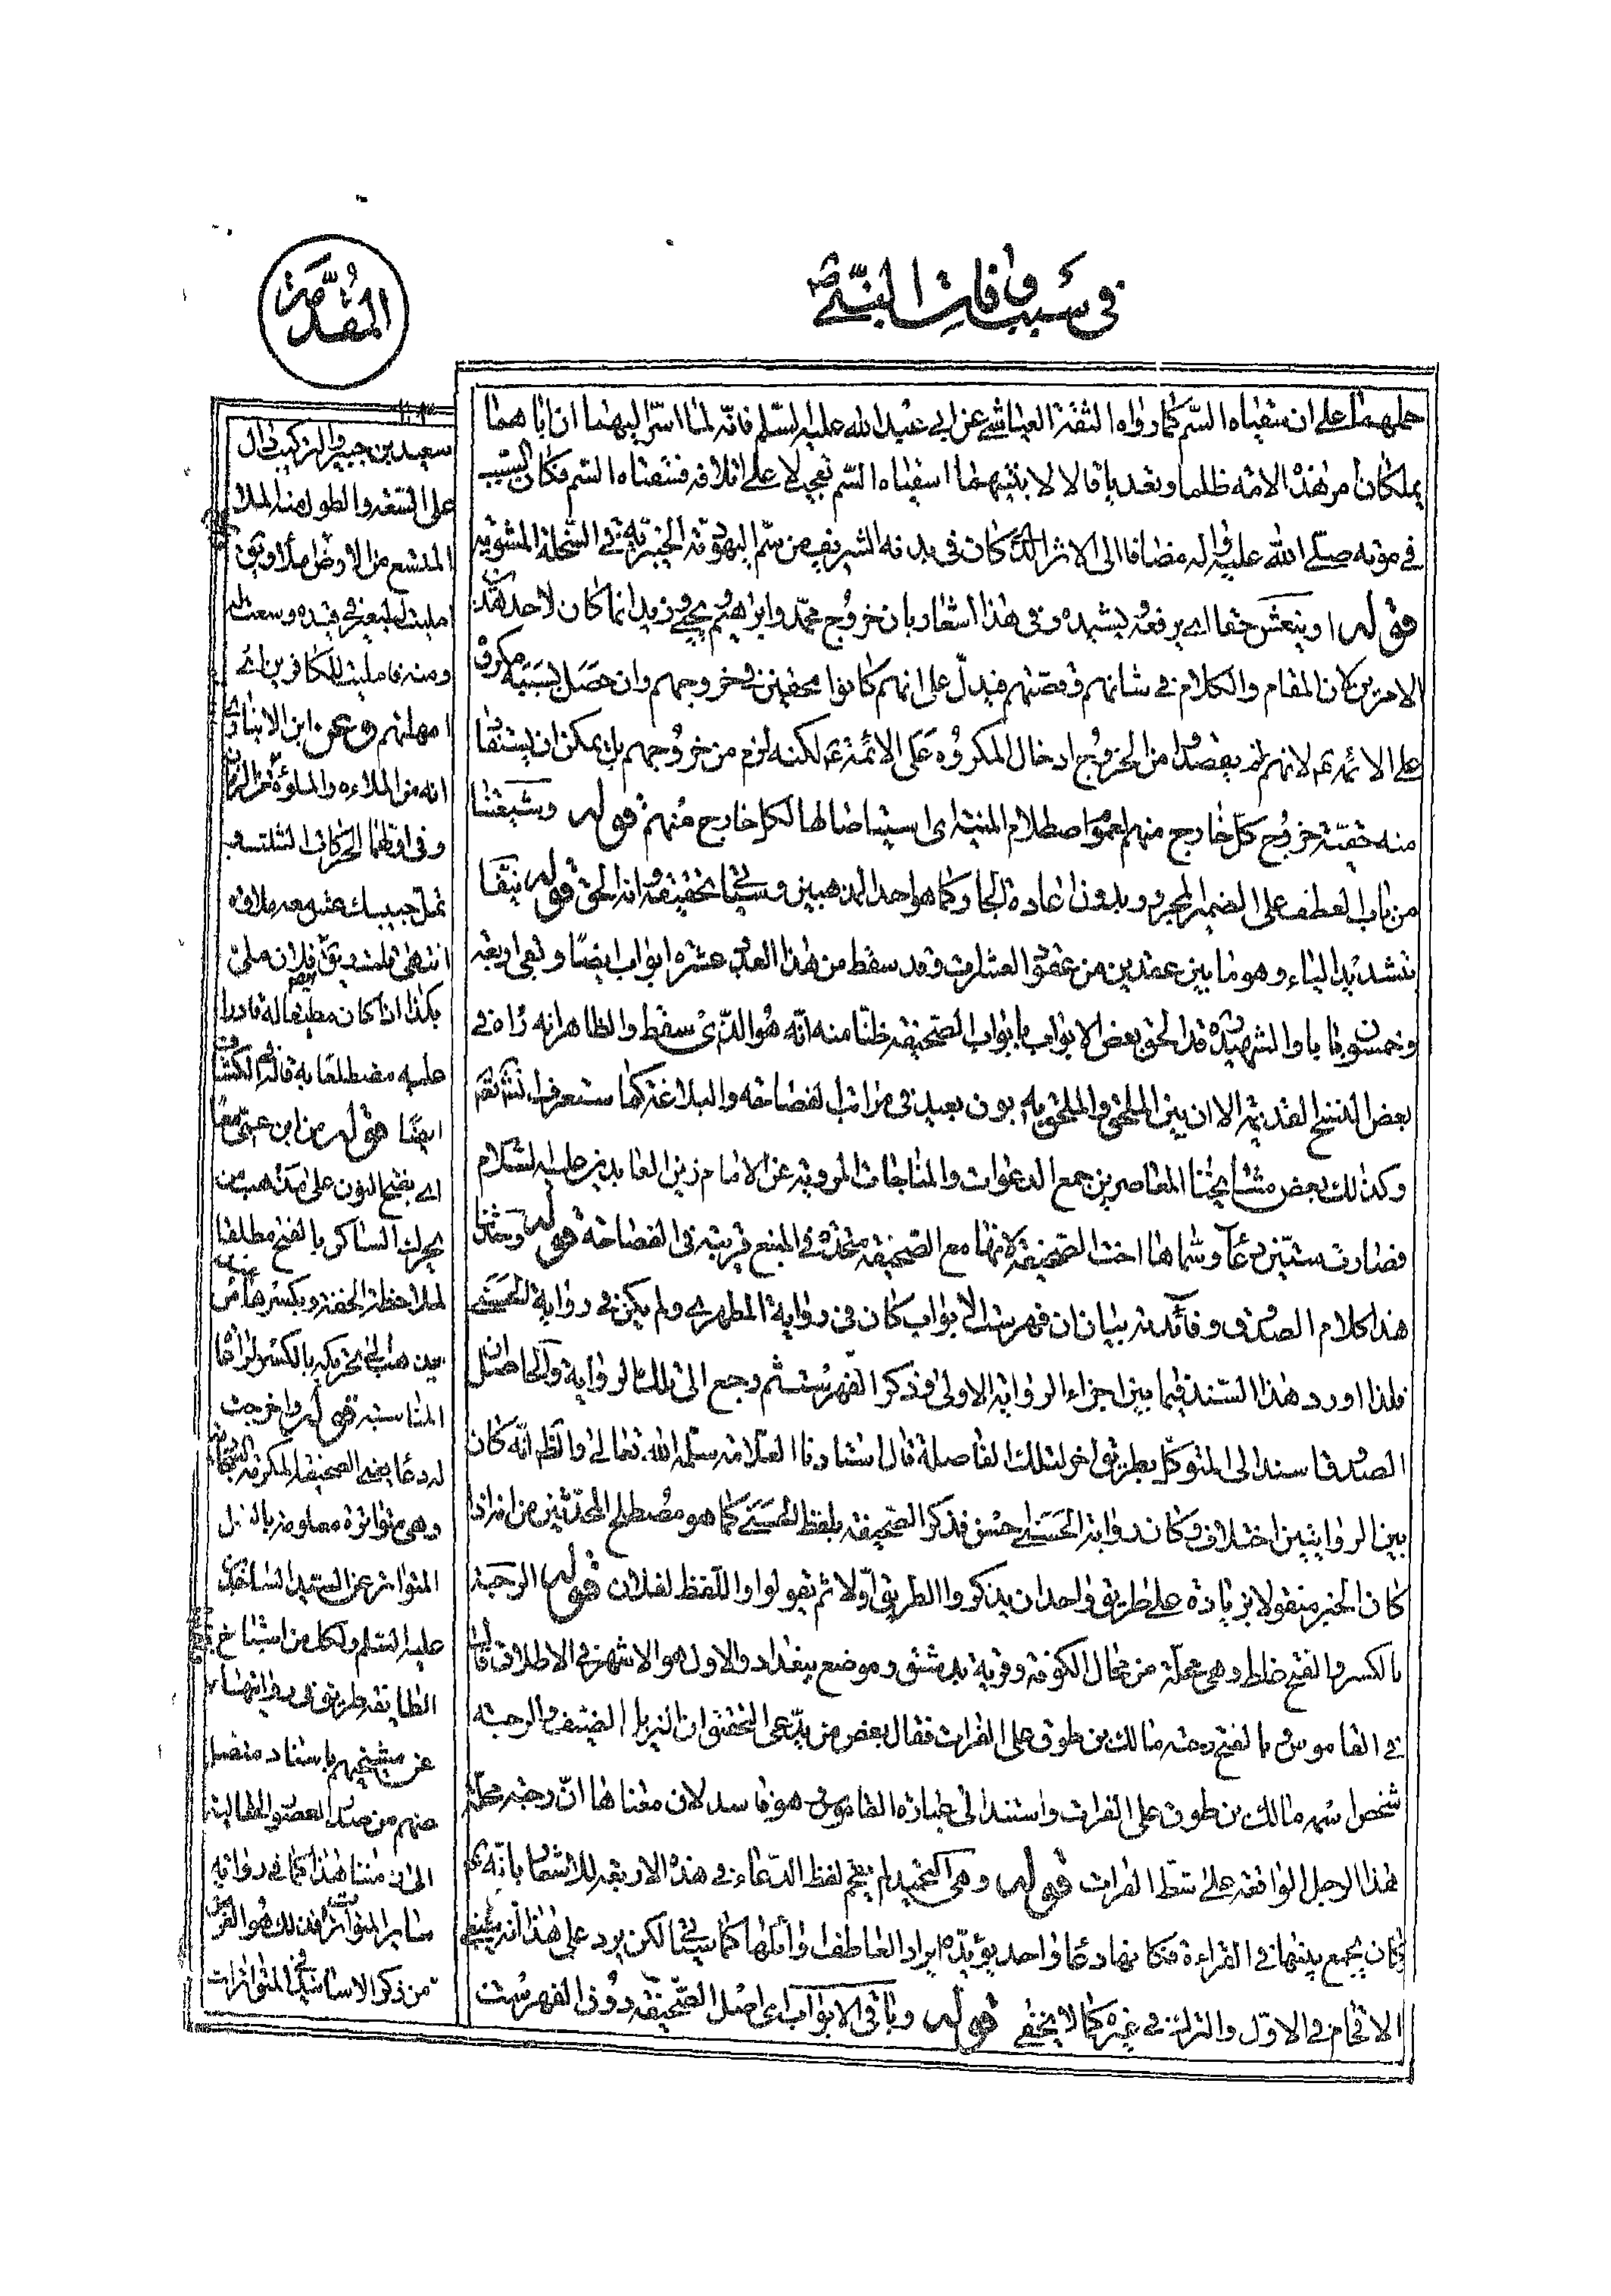 في سبب وفات النبي ص
المقدمة
حملهما على ان سقياه السم كما رواه الثقة العياشي عن ابي عبد الله عليه السلم فانه لما اسر اليهما ان اباهما
يملكان من هذه الامة ظلما وتعديا قالا لابنتيهما اسقياه السم تعجيلا على اتلافه فسقتاه السم فكان السبب
في موته صلى الله عليه واله مضافا الى الاثر الذي كان في بدنه الشريف من سم اليهودية الخيبرية في السخلة المشوية
قوله او ينعش حقا اي يرفعه يشيده وفي هذا اشعار بان خروج محمد وابراهيم ويحيى وزيد انما كان لاحد هذين
الامرين كان المقام والكلام في شانهم وقصتهم فيدل على انهم كانوا محقين في خروجهم وان حصل بسببه مكروه
على الائمة ع لانهم لم يقصدوا من الخروج ادخال المكروه على الائمة ع لكنه لزم من خروجهم بل يمكن ان يستفاد
منه حقية خروج كل خارج منهم لعموم اصطلام المنية اي استيصالها لكل خارج منهم قوله وشيعتنا
من باب العطف على الضمير المجرور وبدون اعادة الجار كما هو احد المذهبين وسيأتي تحقيقه وانه الحق قوله نيفا
بتشديد الياء وهو ما بين عقدين من عقود العشرات وقد سقط من هذا العدد عشرة ابواب ايضا وبقي اربعة
وخمسون بابا والشهيد ره قد الحق بعض الابواب بابواب الصحيفة ظنا منه انه هو الذي سقط والظاهر انه راه في
بعض النسخ القديمة الا ان بين الملحق والملحق به بون بعيد في مراتب الفصاحة والبلاغة كما ستعرفه انشاء الله تعالى
وكذلك بعض مشايخنا المعاصرين جمع الدعوات والمناجات المروية عن الامام زين العابدين عليه السلام
فصارت ستين دعاء وسماها اخت الصحيفة لانها مع الصحيفة متحدة في المنبع قريبة في الفصاحة قوله وحدثنا
هذا كلام الصدوق وفائدته بيان ان فهرست الابواب كان في رواية المطهري ولم يكن في رواية الحسني
فلذا اورد هذا السند فيما بين اجزاء الرواية الاولى وذكر الفهرست ثم رجع الى تلك الرواية والحاصل ان
الصدوق اسند الى المتوكل بطريق اخر لتلك الفاصلة قال استادنا العلامة سلمه الله تعالى والظ انه كان
بين الروايتين اختلاف وكان رواية الحسني احسن فذكر الصحيفة بلفظ الحسني كما هو مصطلح المحدثين من انه اذا
كان الخبر منقولا بزيادة على طريق واحد ان يذكروا الطريق اولا ثم يقولوا واللفظ لفلان قوله الرحبة
بالكسر والفتح غلط وهي محلة من محال الكوفة وقرية بدمشق وموضع ببغداد والاول هو الاشهر في الاطلاق قال
في القاموس بالفتح رحبة مالك بن طوق على الفرات فقال بعض من يدعي التحقيق ان النزيل الضيف والرحبة
شخص اسمه مالك بن طوق على الفرات واستند الى عبارة القاموس وهو فاسد لان معناها ان رحبة محلة
هذا الرجل الواقعة على شط الفرات قوله وهي التحميد لم يقحم لفظ الدعاء في هذه الاربعة للاشعار بانه ع
كان يجمع بينها في القراءة فكانها دعاء واحد يؤيده ايراد العاطف وائلها كما سيأتي لكن يرد على هذا انه ينبغي
الاقحام في الاول والترك في غيره كما لا يخفى قوله وباقي الابواب اي اصل الصحيفة دون الفهرست
سعيد بن جبير والتركيب دال
على السعة والطول منه الملا
المتسع من الارض ملاء ويق
امليت للبعير في قيده وسعت له
ومنه فامليت للكافرين اي
امهلتهم وعن ابن الانباري
انه من الملاءة والملوة من الزمان
وفي اوله الحركات الثلث
تمل حبيبك عشت معه ملاوة
انتهى ويق فلان ملي
بكذا اذا كان مطيقا له قادرا
عليه مضطلعا به قاله في الكشاف
ايضا قوله من ابن عمي
اي بفتح النون على مذهب من
يحرك الساكن بالفتح مطلقا
لملاحظة الخفة وبكسرها على
مذهب من يحركه بالكسر
المناسبة قوله واخرجت
له دعاء يعني الصحيفة المكرمة
وهي متواترة معلومة بالنقل
المتواتر عن السيد الساجدين
عليه السلم ولكل من اشياخ
الطائفة طريق في روايتها
عن مشيختهم باسناد متصل
منهم من صدر العصر والحالية
الى زماننا هذا كما في رواية
ساير المتواترات فذلك هو الغرض
من ذكر الاسانيد في المتواترات